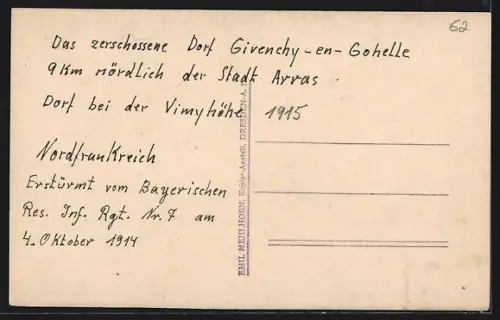 62
Das zerschossene Dorf Givenchy-en-Gohelle
9 Km nördlich der Stadt Arras
Dorf bei der Vimyhöhe 1915
Nordfrankreich
Erstürmt vom Bayerischen
Res. Inf. Rgt. Nr. 7 am
4. Oktober 1914
EMIL MEHLHORN, DRESDEN-A. 1